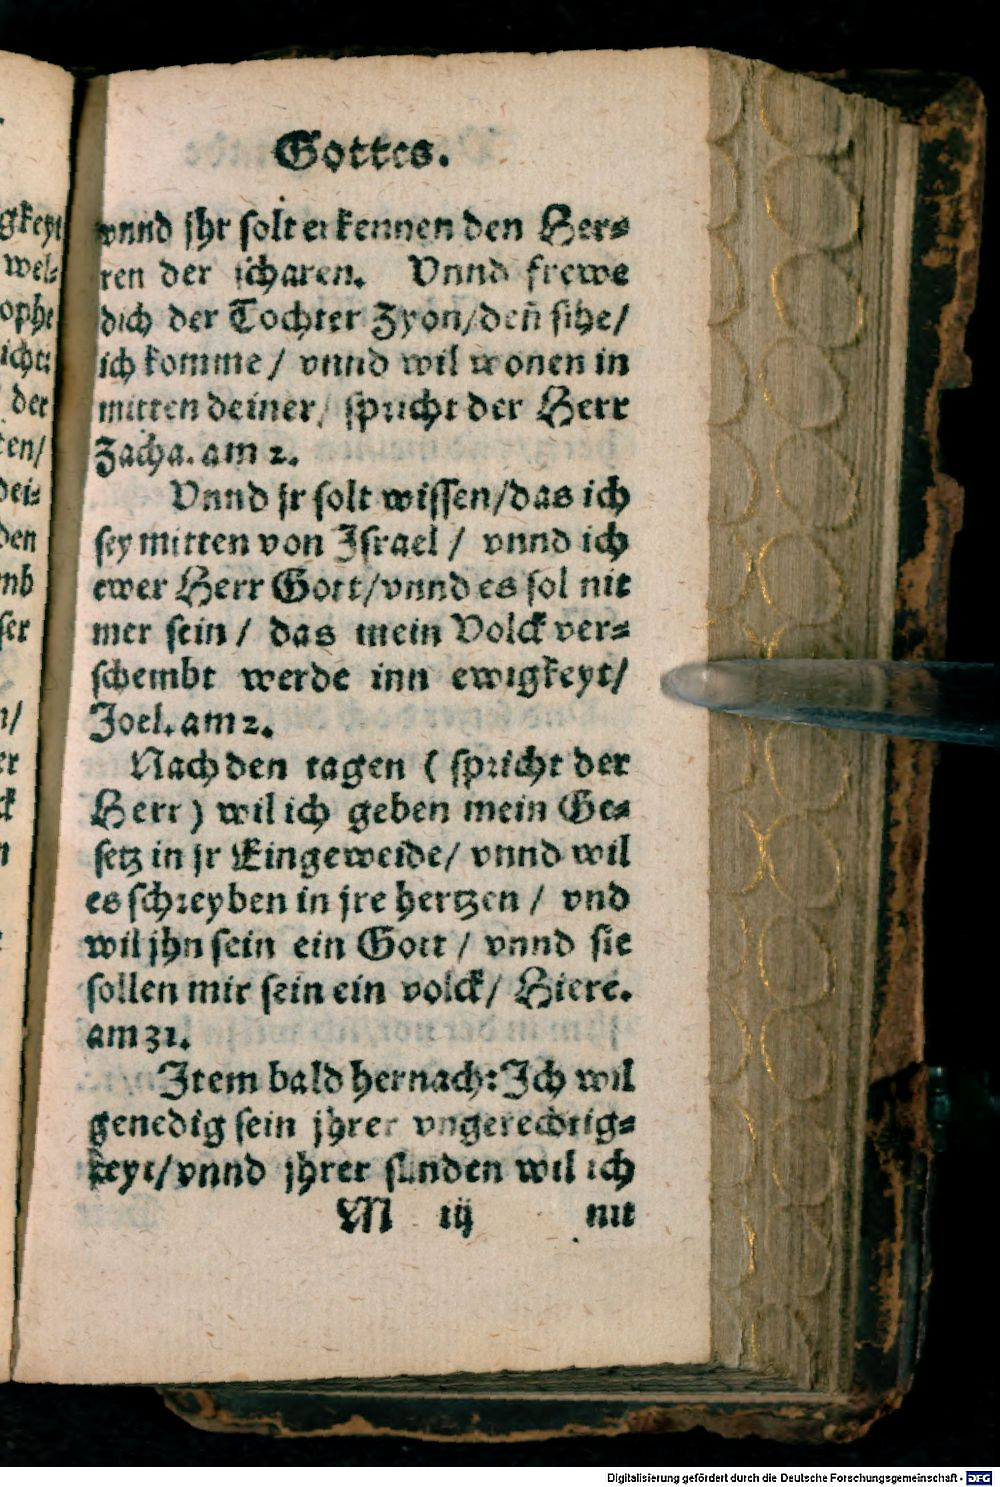 Gottes.
vnnd jhr solt erkennen den Her⸗
ren der scharen. Vnnd frewe
dich der Tochter Zyon/deñ sihe/
ich komme / vnnd wil wonen in
mitten deiner/ spricht der Herr
Zacha. am 2.
Vnnd jr solt wissen/das ich
sey mitten von Israel / vnnd ich
ewer Herr Gott/vnnd es sol nit
mer sein / das mein Volck ver⸗
schembt werde inn ewigkeyt/
Joel. am 2.
Nach den tagen ( spricht der
Herr ) wil ich geben mein Ge⸗
setz in jr Eingeweide/ vnnd wil
es schreyben in jre hertzen / vnd
wil jhn sein ein Gott / vnnd sie
sollen mir sein ein volck/ Hiere.
am 31.
Item bald hernach: Ich wil
genedig sein jhrer vngerechtig⸗
keyt/vnnd jhrer sünden wil ich
M iij nit
gkeyt
wel⸗
ophe
icht:
der
ten/
dei⸗
den
mb
ser
n/
er
ck
n
Digitalisierung gefördert durch die Deutsche Forschungsgemeinschaft - DFG